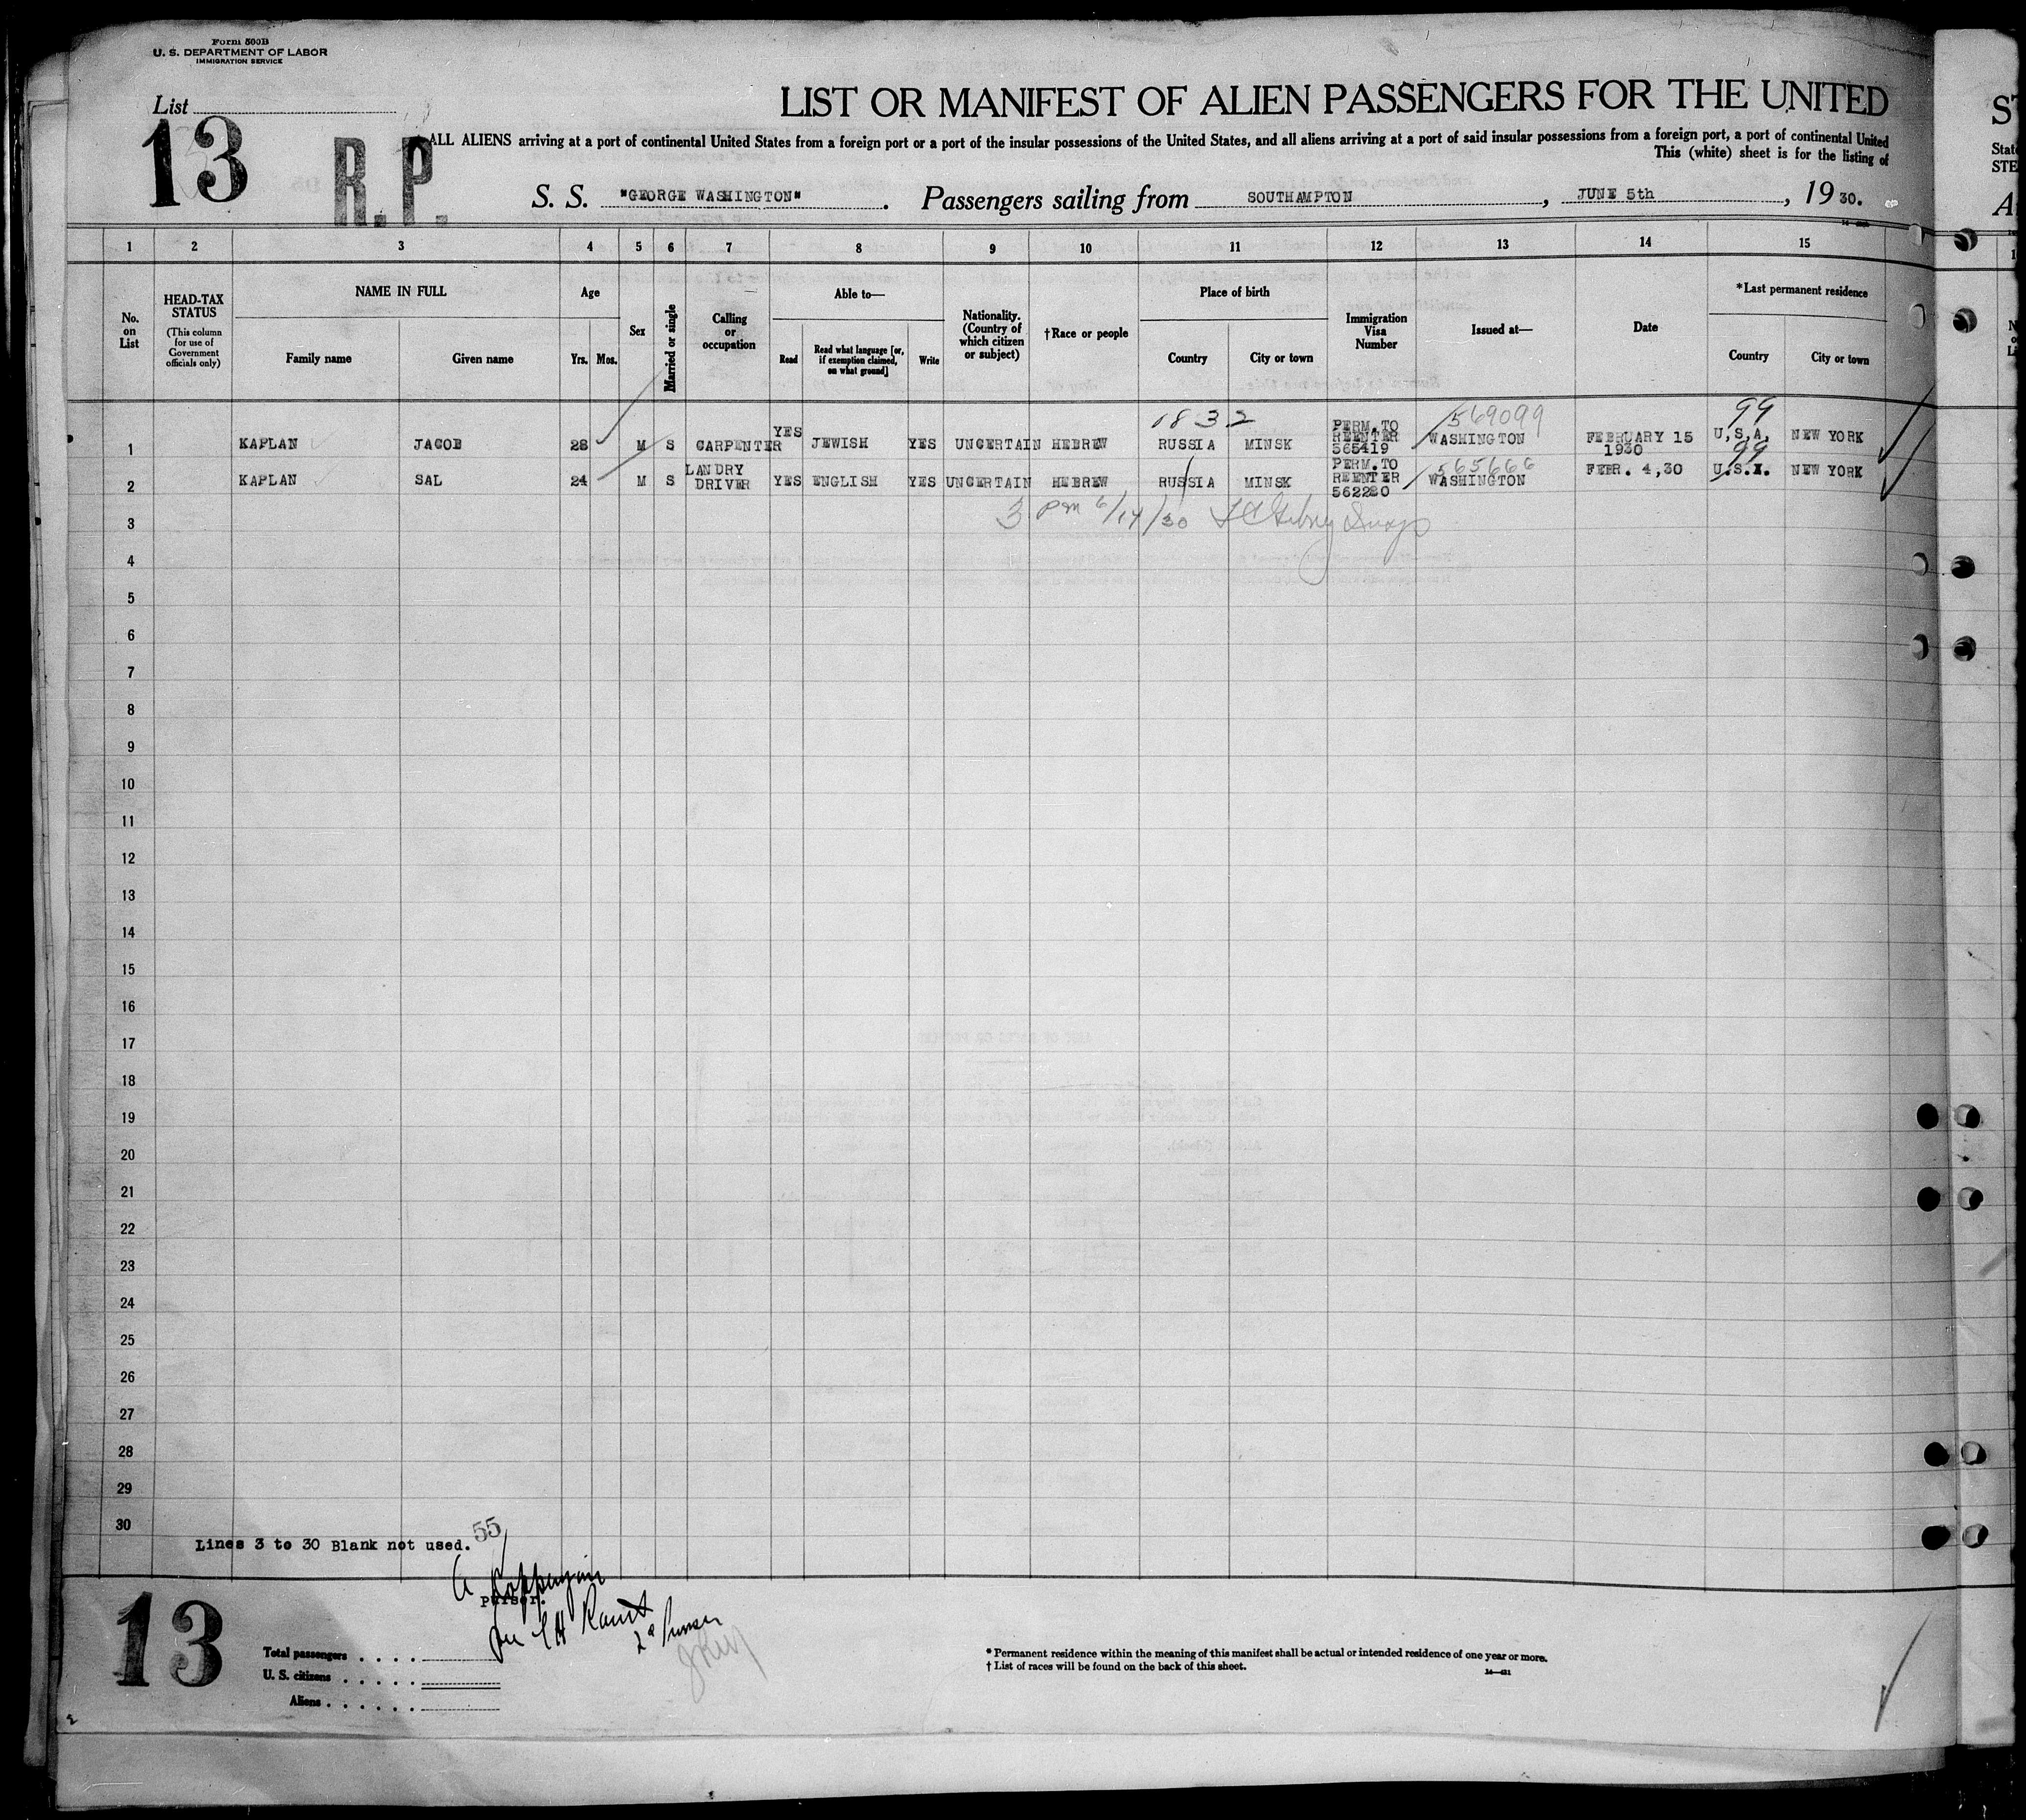 Form 500B
U. S. DEPARTMENT OF LABOR
IMMIGRATION SERVICE
List
13
R.P.
LIST OR MANIFEST OF ALIEN PASSENGERS FOR THE UNITED
ALL ALIENS arriving at a port of continental United States from a foreign port or a port of the insular possessions of the United States, and all aliens arriving at a port of said insular possessions from a foreign port, a port of continental United
This (white) sheet is for the listing of
S. S. "GEORGE WASHINGTON". Passengers sailing from SOUTHAMPTON, JUNE 5th, 1930.
1 2 3 4 5 6 7 8 9 10 11 12 13 14 15
No. on List
HEAD-TAX STATUS
(This column for use of Government officials only)
NAME IN FULL
Family name
Given name
Age
Yrs. Mos.
Sex
Married or single
Calling or occupation
Able to—
Read
Read what language [or, if exemption claimed, on what ground]
Write
Nationality. (Country of which citizen or subject)
†Race or people
Place of birth
Country
City or town
Immigration Visa Number
Issued at—
Date
*Last permanent residence
Country
City or town
1832
569099
99
1 KAPLAN JACOB 28 M S CARPENTER YES JEWISH YES UNCERTAIN HEBREW RUSSIA MINSK PERM.TO REENTER 565419 WASHINGTON FEBRUARY 15 1930 U.S.A. NEW YORK
565666
99
2 KAPLAN SAL 24 M S LANDRY DRIVER YES ENGLISH YES UNCERTAIN HEBREW RUSSIA MINSK PERM.TO REENTER 562280 WASHINGTON FEBR. 4,30 U.S.A. NEW YORK
3 pm 6/14/30
3
4
5
6
7
8
9
10
11
12
13
14
15
16
17
18
19
20
21
22
23
24
25
26
27
28
29
30
Lines 3 to 30 Blank not used.
55
purser.
13
Total passengers
U. S. citizens
Aliens
* Permanent residence within the meaning of this manifest shall be actual or intended residence of one year or more.
† List of races will be found on the back of this sheet.